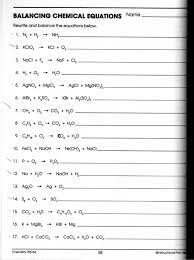 BALANCING CHEMICAL EQUATIONS Name
Rewrite and balance the equations below.
1. N₂ + H₂ → NH₃
2. KClO₃ → KCl + O₂
3. NaCl + F₂ → NaF + Cl₂
4. H₂ + O₂ → H₂O
5. AgNO₃ + MgCl₂ → AgCl + Mg(NO₃)₂
6. AlBr₃ + K₂SO₄ → KBr + Al₂(SO₄)₃
7. CH₄ + O₂ → CO₂ + H₂O
8. C₃H₈ + O₂ → CO₂ + H₂O
9. C₈H₁₈ + O₂ → CO₂ + H₂O
10. FeCl₃ + NaOH → Fe(OH)₃ + NaCl
11. P + O₂ → P₂O₅
12. Na + H₂O → NaOH + H₂
13. Ag₂O → Ag + O₂
14. S₈ + O₂ → SO₃
15. CO₂ + H₂O → C₆H₁₂O₆ + O₂
16. K + MgBr₂ → KBr + Mg
17. HCl + CaCO₃ → CaCl₂ + H₂O + CO₂
58